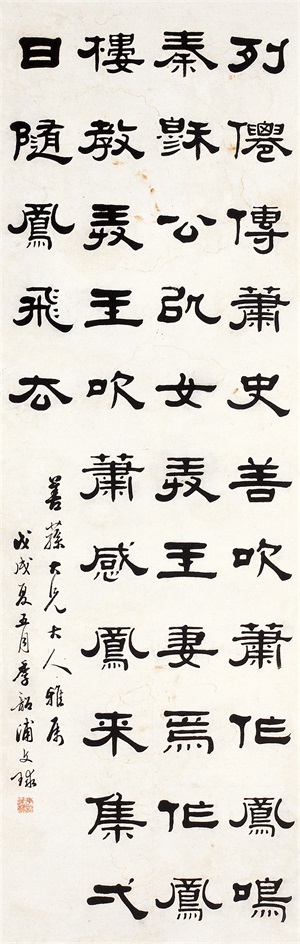 列僊傳蕭史善吹蕭作鳳鳴
秦穌公以女弄王妻焉作鳳
樓教弄王吹蕭感鳳来集弌
日隨鳳飛去
善蓀大兄大人雅属
戊戌夏五月季韶浦文球